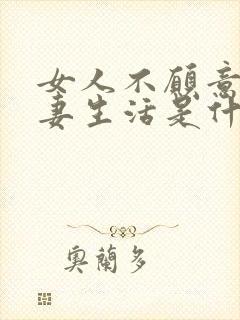 女人不願意
妻生活是什
奧蘭多